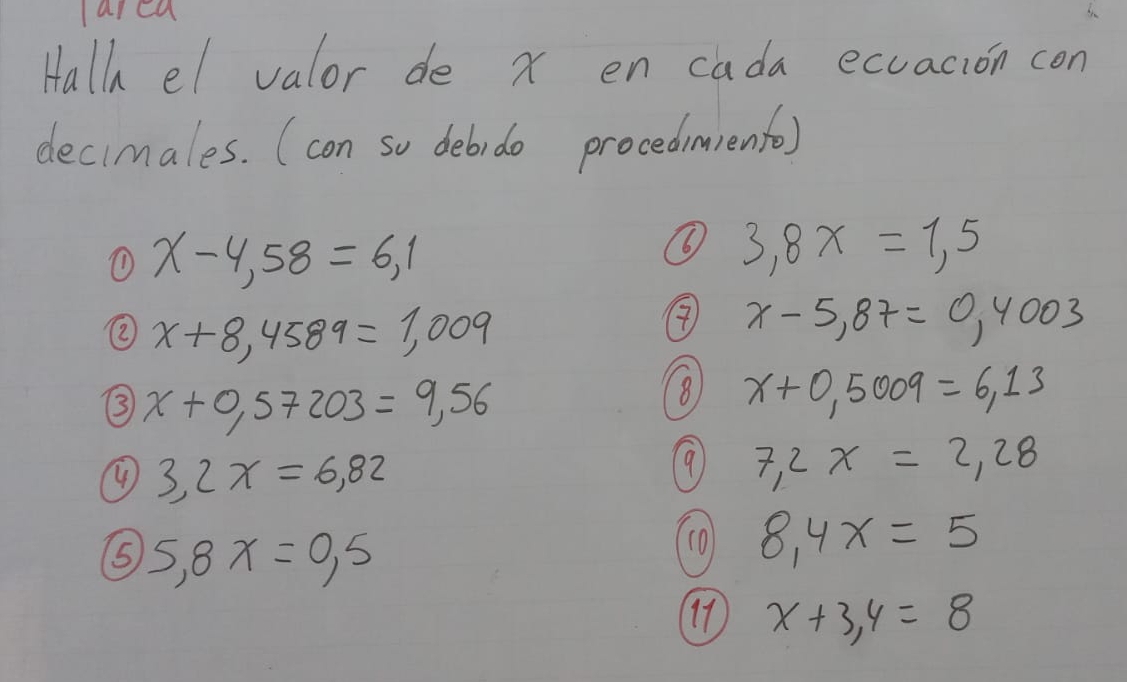 Tarea
Halla el valor de x en cada ecuación con
decimales. (con su debido procedimiento)
① x - 4,58 = 6,1
② x + 8,4589 = 1,009
③ x + 0,57203 = 9,56
④ 3,2 x = 6,82
⑤ 5,8 x = 0,5
⑥ 3,8 x = 1,5
⑦ x - 5,87 = 0,4003
⑧ x + 0,5009 = 6,13
⑨ 7,2 x = 2,28
⑩ 8,4 x = 5
⑪ x + 3,4 = 8